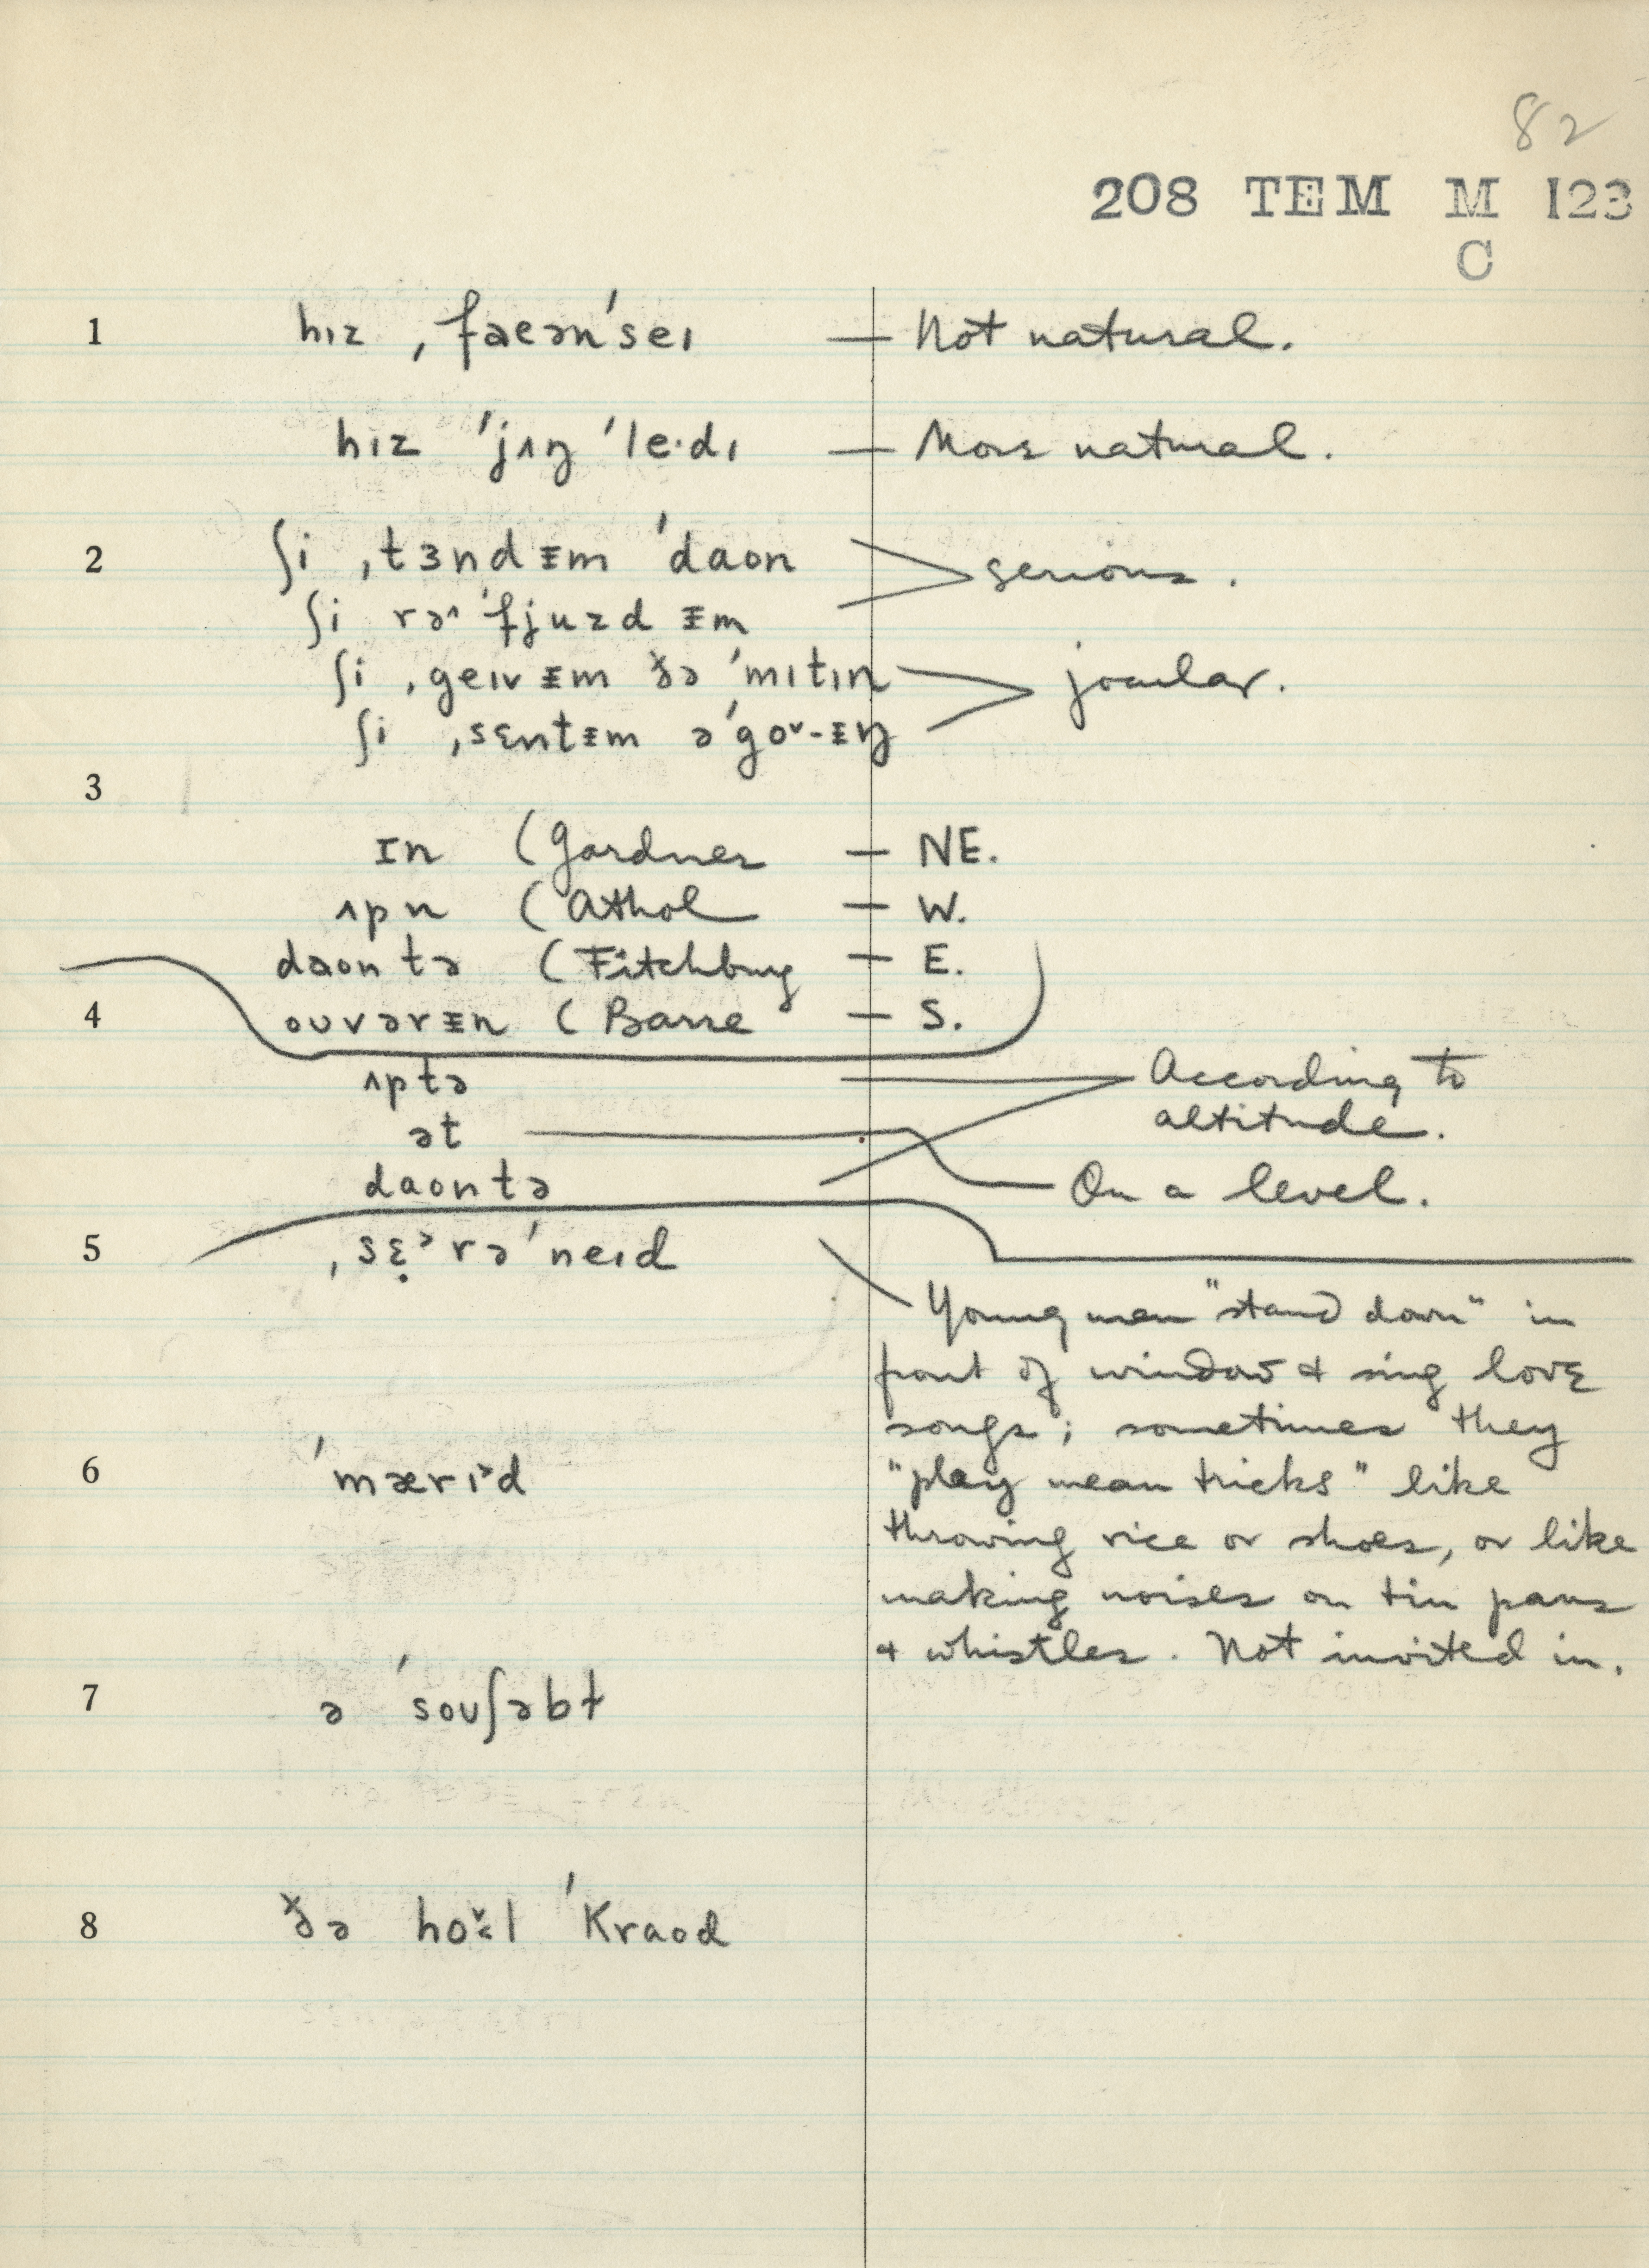 82
208 TEM M 123
C
1 hɪz ˌfaeən'seɪ — Not natural.
hɪz 'jʌŋ 'le·dɪ — More natural.
2 ʃi ˌtɜndᵻm 'daʊn
ʃi rə^'fjuzd ᵻm > serious.
ʃi ˌgeɪvᵻm ðə 'mɪtɪn
ʃi ˌsɛntᵻm ə'goˇ-ᵻŋ > jocular.
3
ɪn (Gardner — NE.
ʌp n (Athol — W.
daʊn tə (Fitchburg — E.
4 oʊvərᵻn (Barre — S.
ʌptə
ət
daʊntə
According to
altitude.
On a level.
5 ˌsɛ̣ᵊrə'neɪd
Young men "stand down" in
front of window & sing love
songs; sometimes they
"play mean tricks" like
throwing rice or shoes, or like
making noises on tin pans
& whistles. Not invited in.
6 'mærɪ>d
7 ə 'soʊʃəbɫ
8 ðə hoˇ<l 'kraʊd